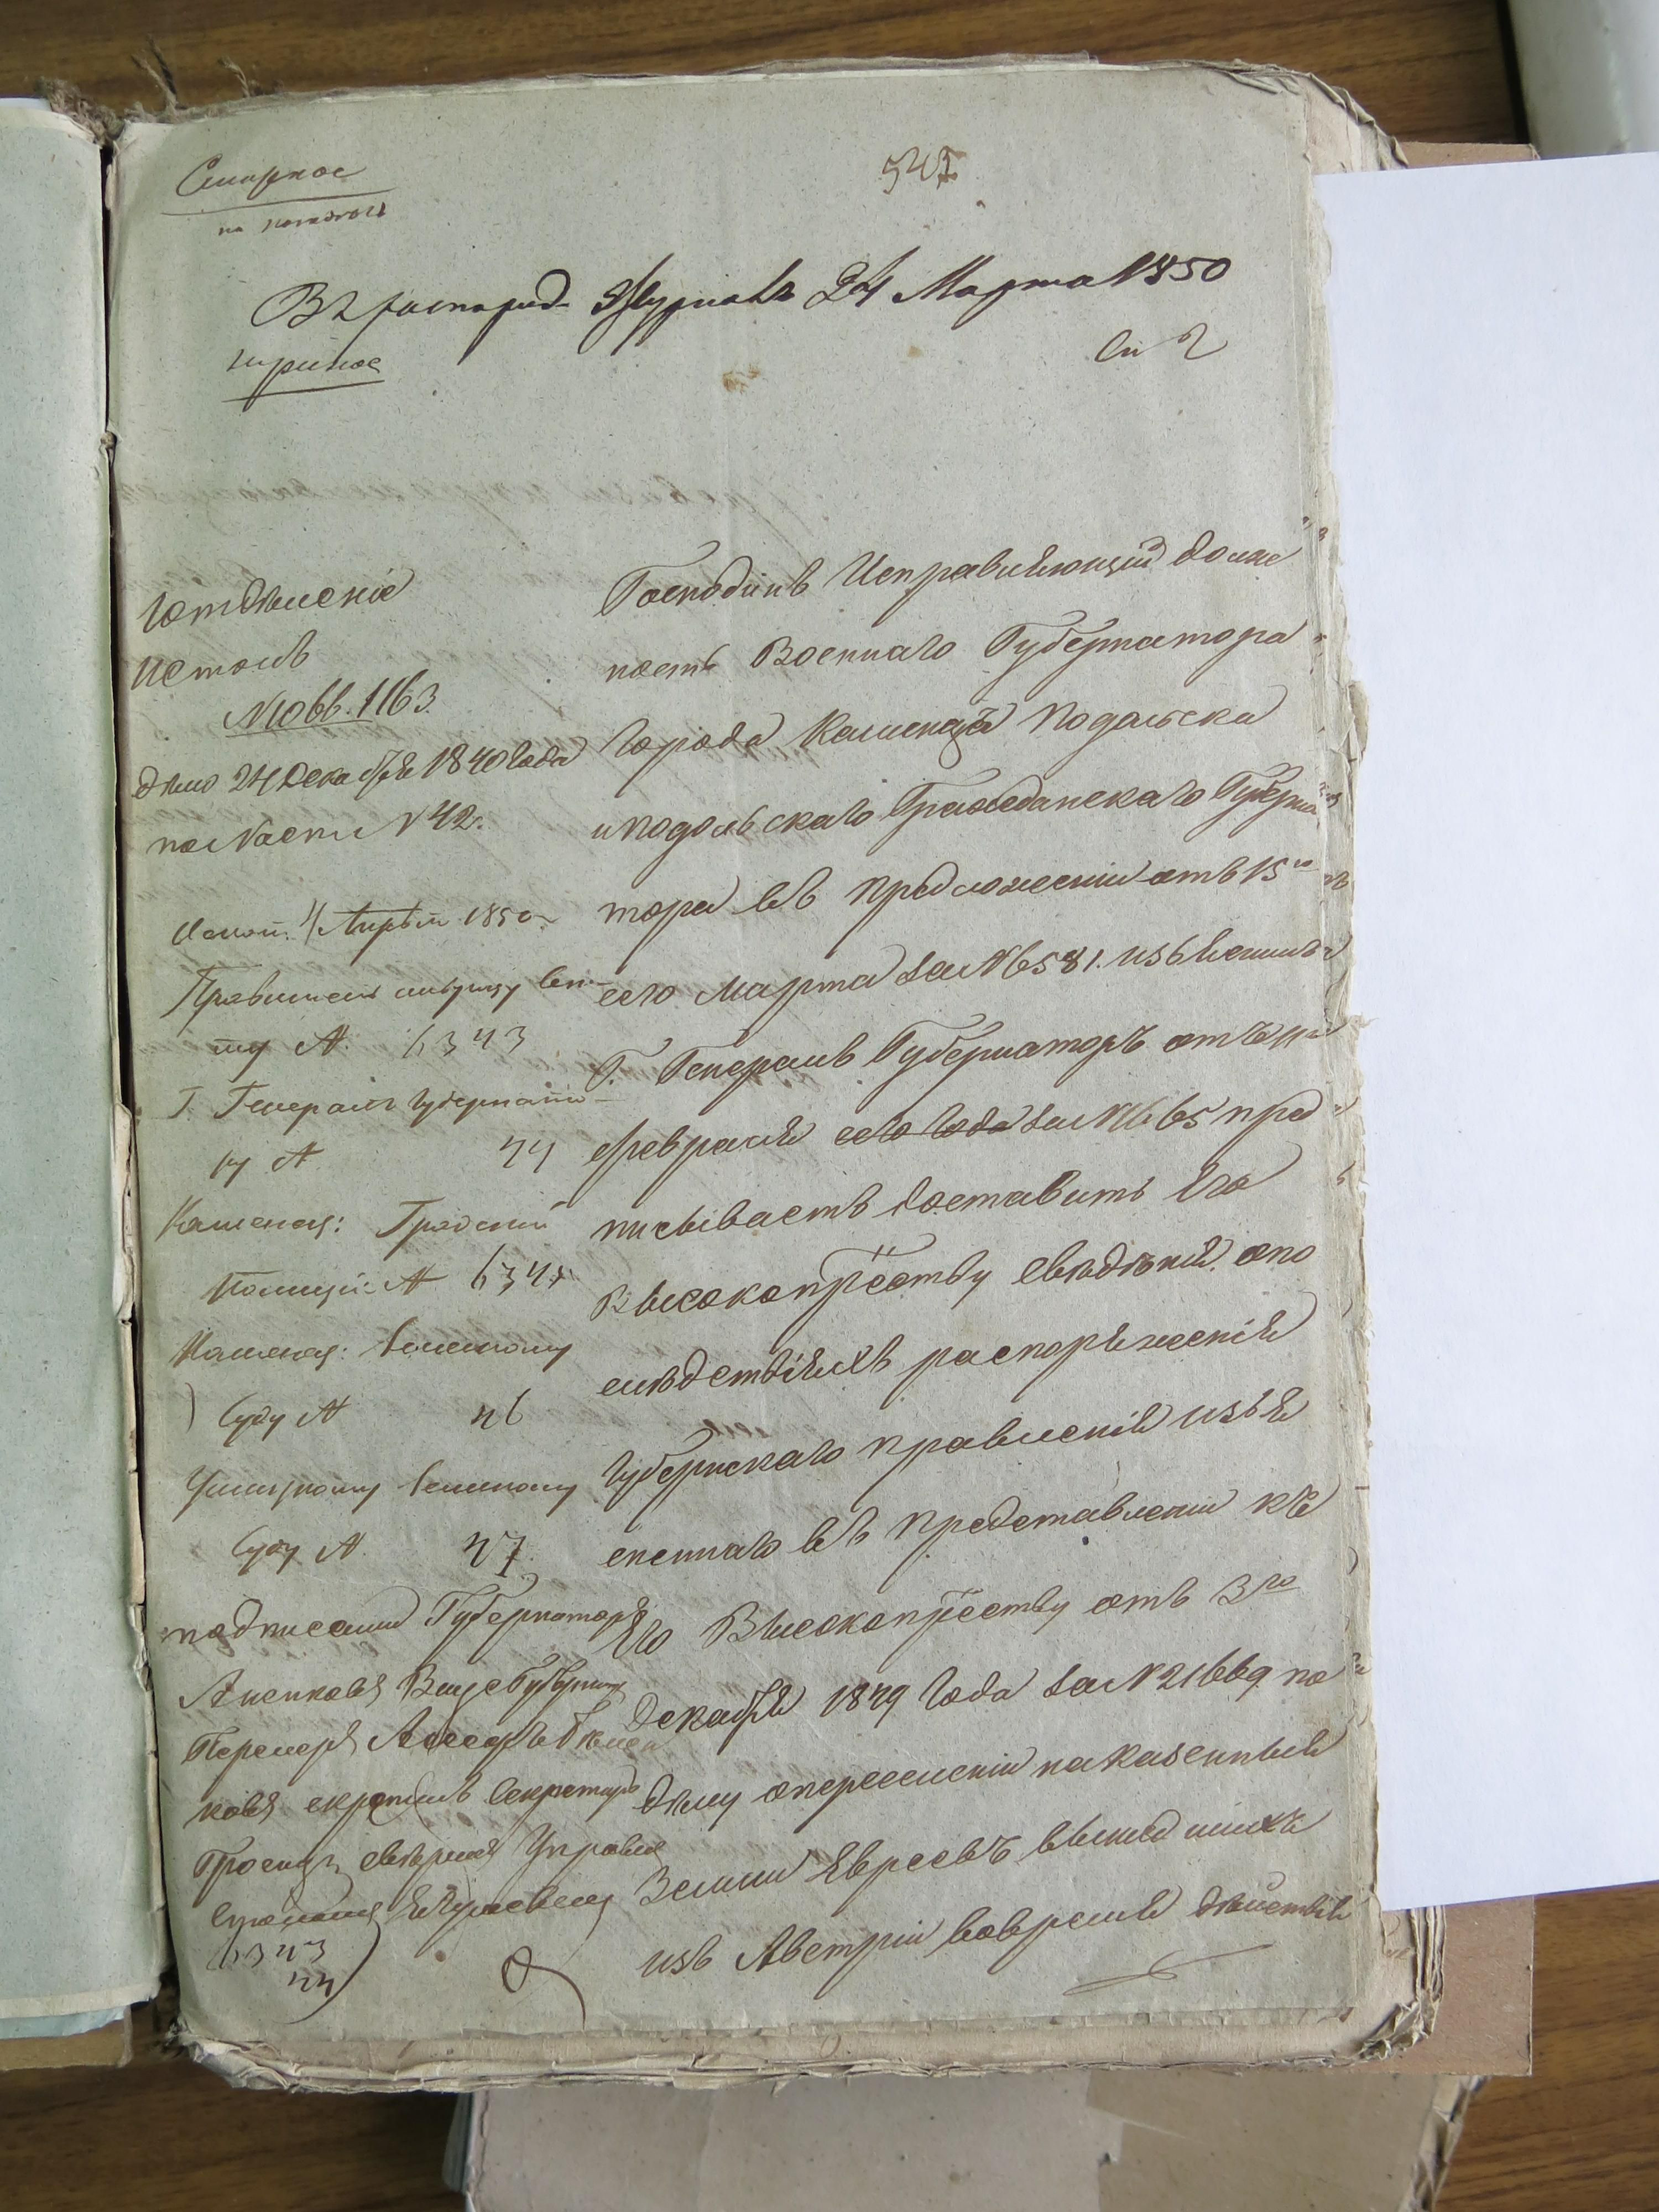 547
Въ распоряд. Журналъ 24 Марта 1850
1 отдѣленіе
Столъ
N 1066. 1163.
дѣло 24 Декабря 1840 года
по части N 42.
Испол. 4 Апрѣля 1850
Правительствующему Сена-
ту N. 6343
Г. Генералъ Губернато-
ру N 44
Каменец: Градской
Полиціи N 6345
Каменец: Земскому
Суду N 46
Ушицкому Земскому
Суду N. 47.
подписали Губернаторъ
Аненковъ Вице Губернат
Перемер Асесоръ
ковъ скрепилъ Секретарь
свѣрялъ
6343
44
Господинъ Исправляющій долж
ность Военнаго Губернатора
города Каменца Подольска
и Подольскаго Гражданскаго Губерна
тора въ предложеніи отъ 15го
сего Марта за N 6581. изъяснилъ
Г. Генералъ Губернаторъ отъ
февраля сего года за N 1665 пред
писываетъ доставить Его
Высокопрвству свѣдѣнія опо
слѣдствіяхъ распоряженія
Губернскаго Правленія изъя
сненнаго въ представленіи къ
Его Высокопрвству отъ 3го
Декабря 1849 года за N 21669 по
дѣлу опереселеніи на Казенныя
Земли Евреевъ вышедшихъ
изъ Австріи вовремя дѣйствія